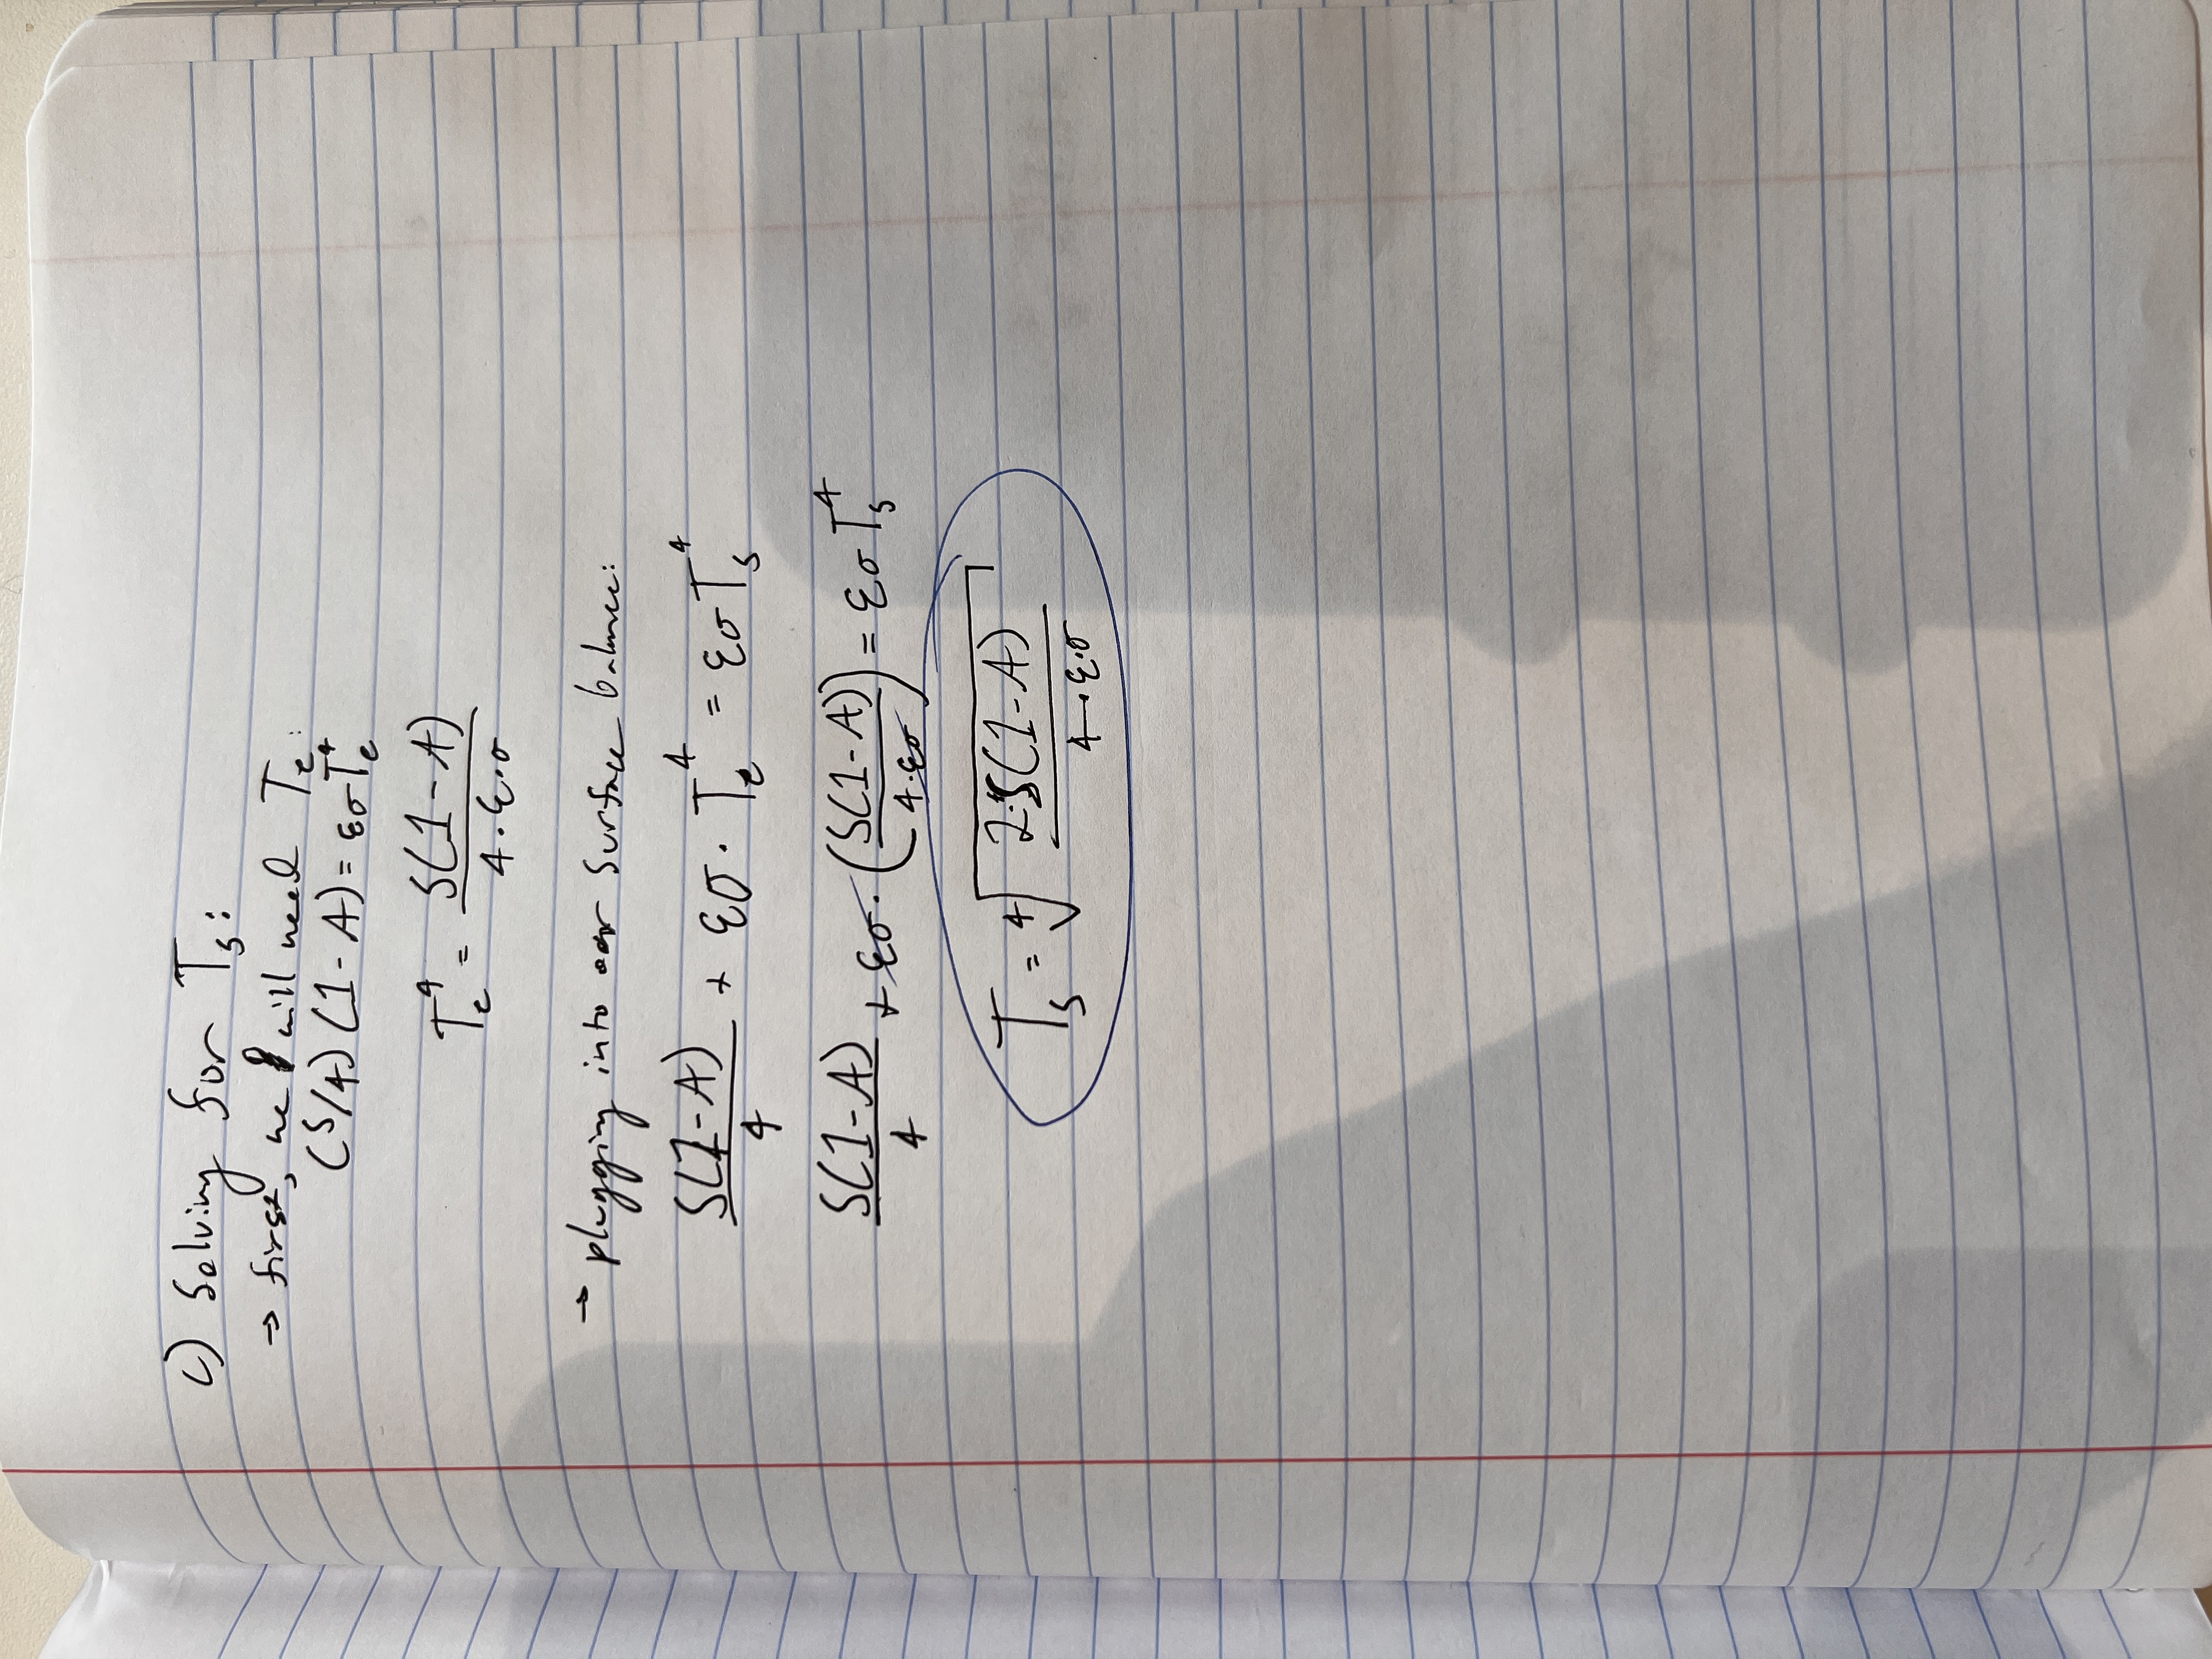 c) Solving for Tₛ:
→ first, we will need Tₑ:
(S/4)(1-A) = εσTₑ⁴
Tₑ⁴ = S(1-A) / 4·ε·σ
→ plugging into our surface balance:
S(1-A)/4 + εσ·Tₑ⁴ = εσTₛ⁴
S(1-A)/4 + εσ·(S(1-A)/4·εσ) = εσTₛ⁴
Tₛ = ⁴√(2·S(1-A) / 4·ε·σ)